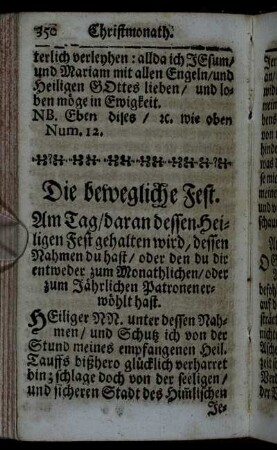 350 Christmonath.
terlich verleyhen: allda ich JEsum/
und Mariam mit allen Engeln/und
Heiligen GOttes lieben/ und lo-
ben möge in Ewigkeit.
NB. Eben dises/ ꝛc. wie oben
Num. 12.
Die bewegliche Fest.
Am Tag/daran dessen Hei-
ligen Fest gehalten wird, dessen
Nahmen du hast/ oder den du dir
entweder zum Monathlichen/oder
zum Jährlichen Patronen er-
wöhlt hast.
HEiliger NN. unter dessen Nah-
men/ und Schutz ich von der
Stund meines empfangenen Heil.
Tauffs bißhero glücklich verharret
bin; schlage doch von der seeligen/
und sicheren Stadt des Him̃lischen
Je-